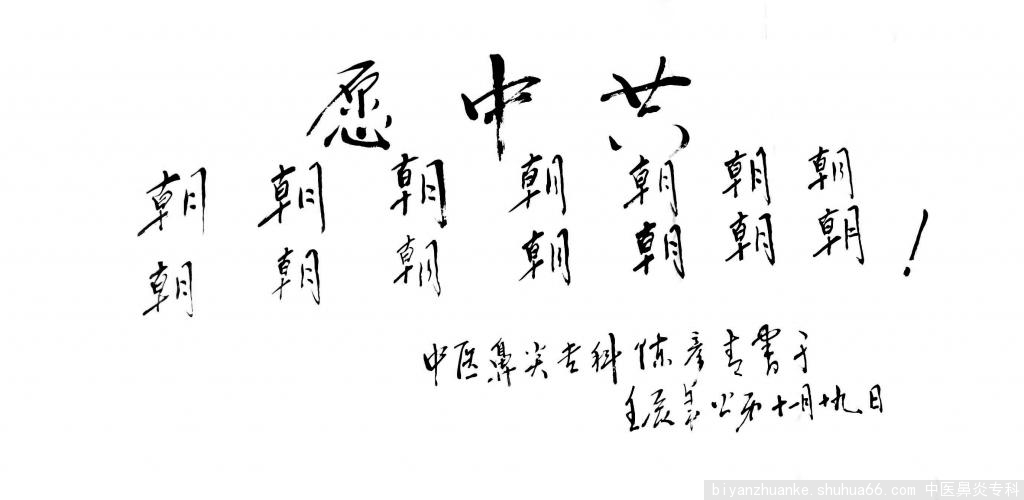 愿中共
朝朝朝朝朝朝朝
朝朝朝朝朝朝朝!
中医鼻炎专科陈彦青书于
壬辰年公历十一月十九日
biyanzhuanke.shuhua66.com 中医鼻炎专科